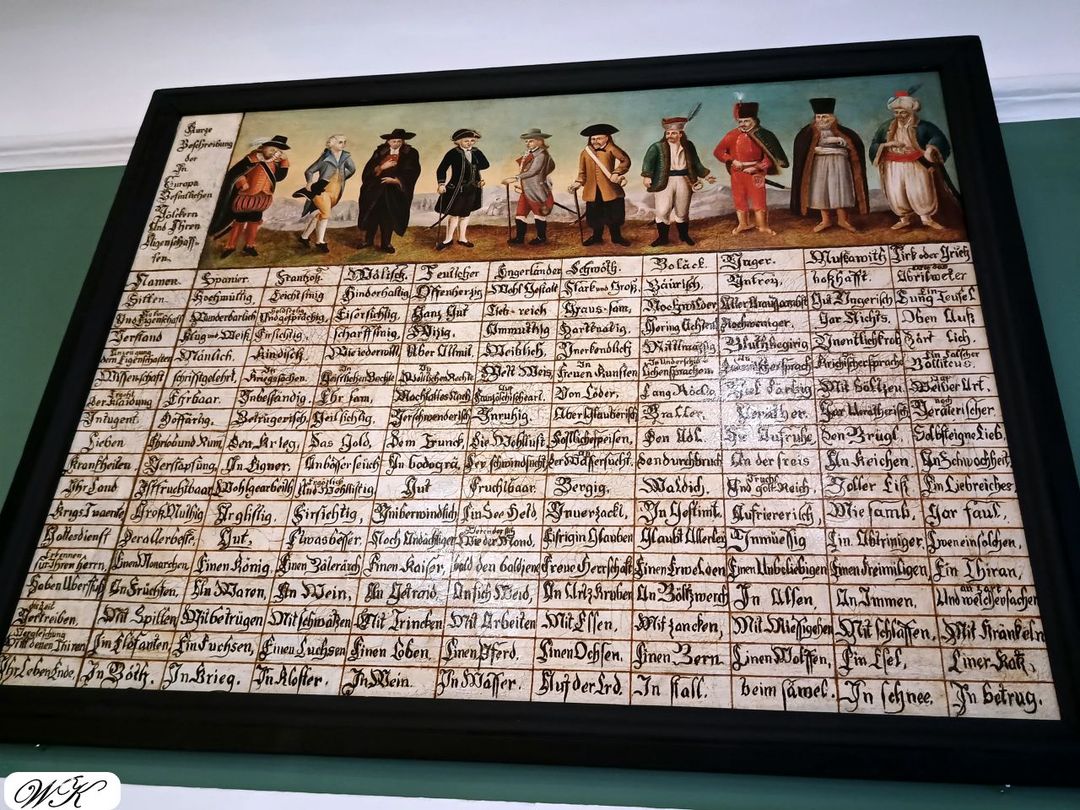 Kurze
Beschreibung
der
In
Europa
Befintlichen
Völckern
Und Ihren
Aigenschaff-
ten.
Namen. Spanier. Frantzoß Wälisch. Teutscher Engerländer Schwöth. Boläck. Unger. Muskawith Tirk oder Griech
Sitten Hochmüttig, Leicht sinig Hinderhaltig, Offenherzig Wohl Gestalt Starck und Groß, Bäurisch, Untrey, boßhafft. Abrilweter
Und Eigenschaft Wunderbarlich Und gesprächig, Eifersichtig, Ganz Gut Lieb-reich Graus-sam, Gut Ungerisch, Lung Teufel
Verstand Klug und Weiß Firsichtig, Scharffsinig, Wizig, Anmuthig Hartknäkig, Gering Achtent, Nochweniger, Gar Nichts, Oben Auß
Anzeigung deren Eigenschaften Mänlich, Kindisch, Wie iederwill, Über Allmit, Weiblich, Unerkendlich Mittlmässig Bluthbegirig, Unentlich krob Zart lich,
Wissenschaft schrifftgelehrt, In Kriegssachen, In Geistlichen Rechte In Weltlichen Rechte Welt Weis, In Freuen Kunsten In Krichischersprach Ein Falscher Bolliticus,
Der Kleidung Ehrbaar. Unbestandig, Ehr sam, Macht alles Nach Auf Französchischeart. Von Löder, Lang Röckig, Viel Farbig Mit Böltzen, Weiber Art.
Untugent, Hoffärtig, Betrügerisch, Geil sichtig, Verschwenderisch Unruhig, Aber Glauberisch Braller, Veräther. Gar Verätherisch, Noch Veräterischer.
Lieben Ehrlob und Rum, Den Krieg, Das Gold, Den Trunck, Die Wohllust Köstlichespeisen, Den Adl, Die Aufruhr, Den Brügl, Selbsteigne Lieb,
Kranckheiten Verstopfung, An Eigner, An böser seuch An bodogrä, Der schwindsucht, Der Wassersucht, Den durchbruch An der freis An Keichen, An Schwachheit,
Ihr Land Ist fruchtbaar Wohlgearbeith Ergötzlich Und Wohllistig Gut Fruchtbaar, Bergig, Waldich, Frucht Und golt Reich, Voller Eiß Ein Liebreiches
Krigs Tugente Groß Muthig Arglistig, Firsichtig, Uniberwindlich Ein See Held, Unverzackt, Un Gestimt, Aufriererisch, Miesamb, Gar faul,
Gottesdienst Der allerbeste, Gut, Etwas besser, Noch Andächtiger Wie der Mond, Eifrig in Glauben Glaubt Allerley Unmüessig Ein Abtriniger, Eweneinsolchen,
Erkennen für Ihren herrn, Einen Monarchen Einen König, Einen Batterärch, Einen Kaiser, bald den bald jenen Freye Herrschaft Einen Erwelden Einen Unbeliebigen Einen Freimiligen, Ein Thiran,
Haben Uberfluß An Früchten, An Waren, An Wein, An Getraid, An fich Weid, An Ärtz Kruben An Böltzwerch In Allen, An Immen, Und weichen sachen
die Zeit Vertreiben, Mit Spillen Mit betrügen, Mit schwätzen Mit Trincken Mit Arbeiten Mit Essen, Mit zancken, Mit Miessigehen Mit schlaffen, Mit Kränkeln
Vergleichung Mit denen Thiren Ein Elofanten, Ein Fuchsen, Einen Luchsen Einen Löben, Einen Pferd, Einen Ochsen, Einen Bern, Einen Wolffen, Ein Esel, Einer Katz,
Ihr Leben Ende, In Böth, In Krieg, In Kloster, In Wein, In Wasser, Auf der Erd, In stall, beim säwel, In schnee, In betrug.
WK